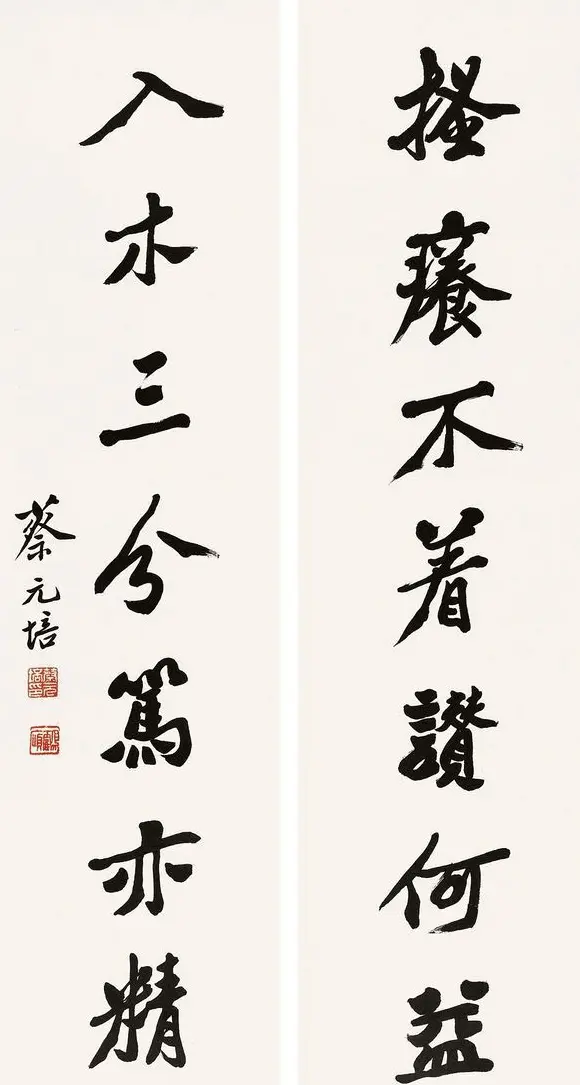 搔癢不着讚何益
入木三分罵亦精
蔡元培